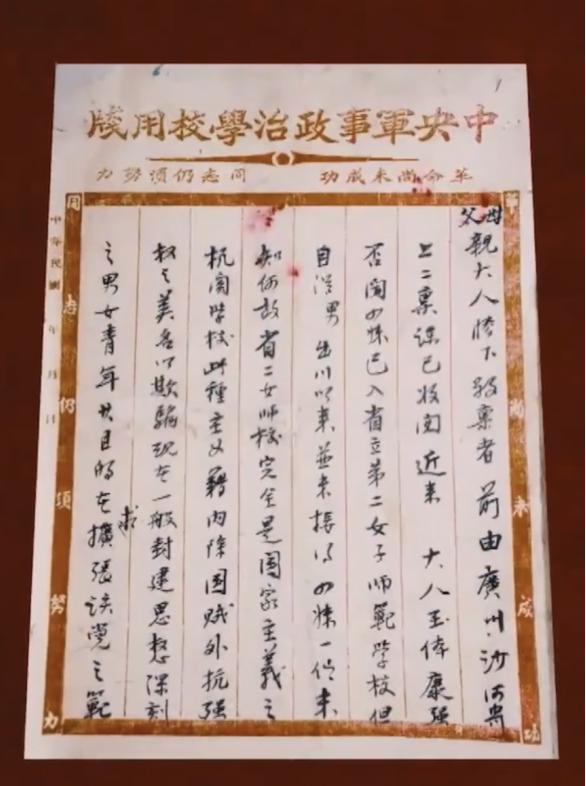 中央軍事政治學校用牋
革命尚未成功 同志仍須努力
革命尚未成功
父母親大人膝下敬稟者 前由廣州沙河寄
上二稟諒已收閱近来 大人玉体康强
否閱四妹已入省立第二女子師範學校但
自從男出川以来並未接得四妹一信未
知何故省二女师校完全是國家主義之
机関學校此種主义藉内除国贼外抗强
权之美名以欺騙现在一般封建思想深刻
之男女青年其目的在求擴張該黨之範
同志仍須努力
中華民國 年 月 日